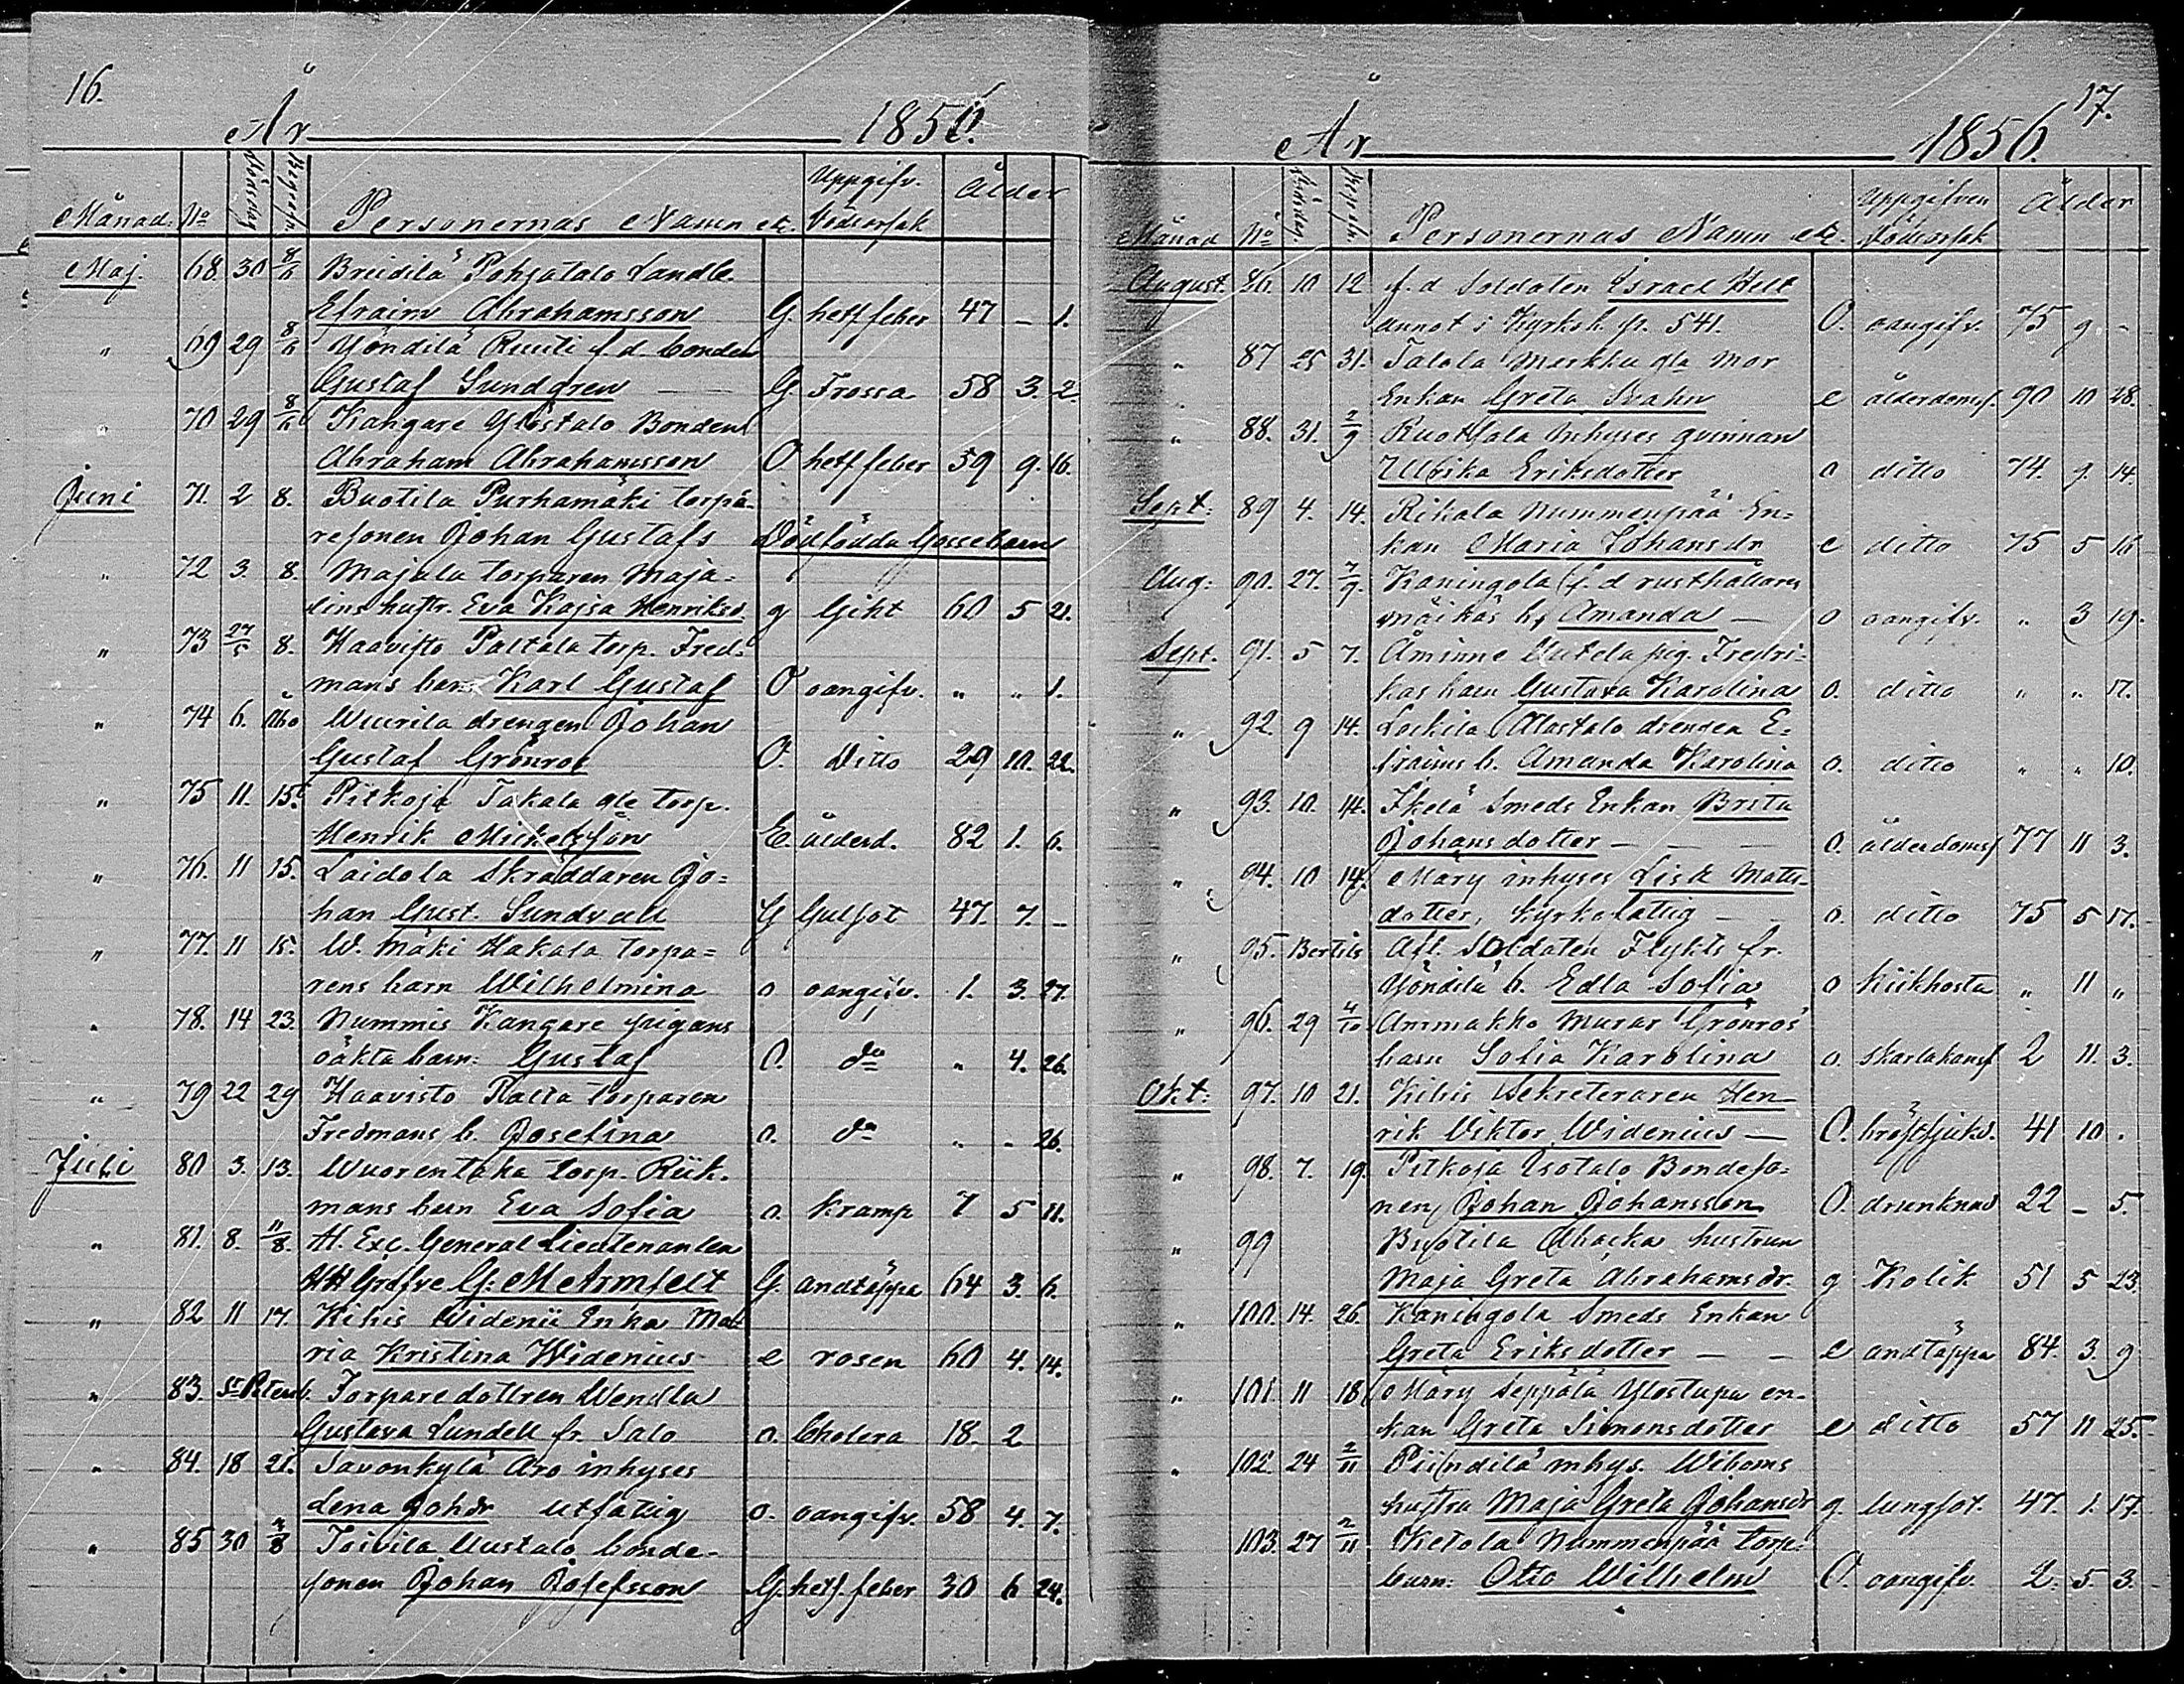 16.
År 1856.
Månad. No Dödsdag Begrafn. Personernas Namn etc. Uppgifv. Dödsorsak Ålder
Maj. 68. 30 8/6 Breidilä Pohjatalo Landb.
Efraim Abrahamsson G. hetf feber 47 - 1.
" 69 29 8/6 Yöndilä Ruuti f. d. bonden
Gustaf Sundgren G. Frossa 58 3. 2.
" 70 29 8/6 Kangare Ylöstalo Bonden
Abraham Abrahamsson O hetf feber 59 9. 16.
Juni 71. 2 8. Buotila Purhamäki torpa-
resonen Johan Gustafs Dödfödda Gossebarn
" 72 3. 8. Majala torparen Maja-
lins hustr. Eva Kajsa Henriksd. g Gikt 60 5 21.
" 73 27/5 8. Haavisto Paltala torp. Fred-
mans barn Karl Gustaf O oangifv. " " 1.
" 74 6. Åbo Wuorila drengen Johan
Gustaf Grönroos O. Ditto 29 10. 22.
" 75 11. 15. Pitkoja Takala gle torp.
Henrik Mickelsson E. ålderd. 82 1. 6.
" 76. 11 15. Laidola Skräddaren Jo-
han Gust. Sundvall G Gulsot 47. 7. -
" 77. 11 15. W. Mäki Hakala torpa-
rens barn Wilhelmina o oangifv. 1. 3. 27.
" 78. 14 23. Nummis Kangare pigans
oäkta barn: Gustaf O. do " 4. 26.
" 79 22 29 Haavisto Palta torparen
Fredmans b. Joselina o. do " " 26.
Juli 80 3. 13. Wuorentaka torp. Riik-
mans barn Eva Sofia o. Kramp 7 5 11.
" 81. 8. 11/8. H. Exc. General Lieutenanten
Grefve G: M Armfelt G. andtäppa 64 3. 6.
" 82 11 17. Kihis Widenii Enka Ma-
ria Kristina Widenius e rosen 60 4. 14.
" 83. St Petersb. Torparedottren Wendla
Gustava Lundell fr. Salo o. Cholera 18. 2
" 84. 18 21. Savonkylä Aro inhyses
Lena Johdr utfattig o. oangifv. 58 4. 7.
" 85 30 3/8 Toivila Uustalo bonde-
sonen Johan Josefsson G. hetf. feber 30 6 24.
17.
År 1856.
Månad No Dödsdag. Begrafn. Personernas Namn etc. Uppgifven Dödsorsak Ålder
August. 86. 10 12 f. d Soldaten Israel Helt
annot i Kyrkob. p. 541. O. oangifv. 75 9 -
" 87 25 31. Talola Markku gla Mor
" Enkan Greta Svahn e ålderdomsf. 90 10 28.
" 88. 31. 2/9 Ruotsala inhyses qvinnan
Ulrika Eriksdotter o ditto 74. 9. 14.
Sept: 89 4. 14. Rikala Nummenpää En-
kan Maria Johansdr e ditto 75 5 16
Aug: 90. 27. 7/9. Kaningola f. d rusthållaren
b. Amanda - o oangifv. " 3 19.
Sept. 91. 5 7. Åminne Uutela pig. Fredri-
kas barn Gustava Karolina o. ditto " " 17.
" 92. 9 14. Lockila Alastalo drengen E-
fraims b. Amanda Karolina o. ditto " " 10.
" 93. 10. 14. Ikelä Smeds Enkan Brita
Johansdotter - - - O. ålderdomsf 77 11 3.
" 94. 10 14. Märy inhyses Lisa Matts-
dotter, Kyrkofattig - o. ditto 75 5 17.
" 95. Bertils Afl. Soldaten Flykts fr.
Yöndilä b. Edla Sofia o kikhosta " 11 "
" 96. 29 4/10 Ammakko Murar Grönros
barn Sofia Karolina o. skarlakansf 2 11. 3.
Okt: 97. 10 21. Kihis Sekreteraren Hen-
rik Viktor Widenius - O. bröstsjukd. 41 10 .
" 98. 7. 19. Pitkoja Isotalo Bondeso-
nen Johan Johansson O. drunknad 22 - 5.
" 99 Buotila Uhacka hustrun
Maja Greta Abrahamsdr. g Kolik 51 5 23.
" 100. 14. 26. Kaningola Smeds Enkan
Greta Eriksdotter - - e andtäppa 84. 3. 9
" 101. 11 18 Märy Seppälä Ylostupa en-
kan Greta Simonsdotter e ditto 57 11 25.
" 102. 24 2/11 Piindilä inhys. Wiholms
hustru Maja Greta Johansdr g. lungsot. 47. 1. 17.
103. 27 2/11 Ketola Nummenpää torp:
barn: Otto Wilhelm O. oangifv. 2. 5. 3.